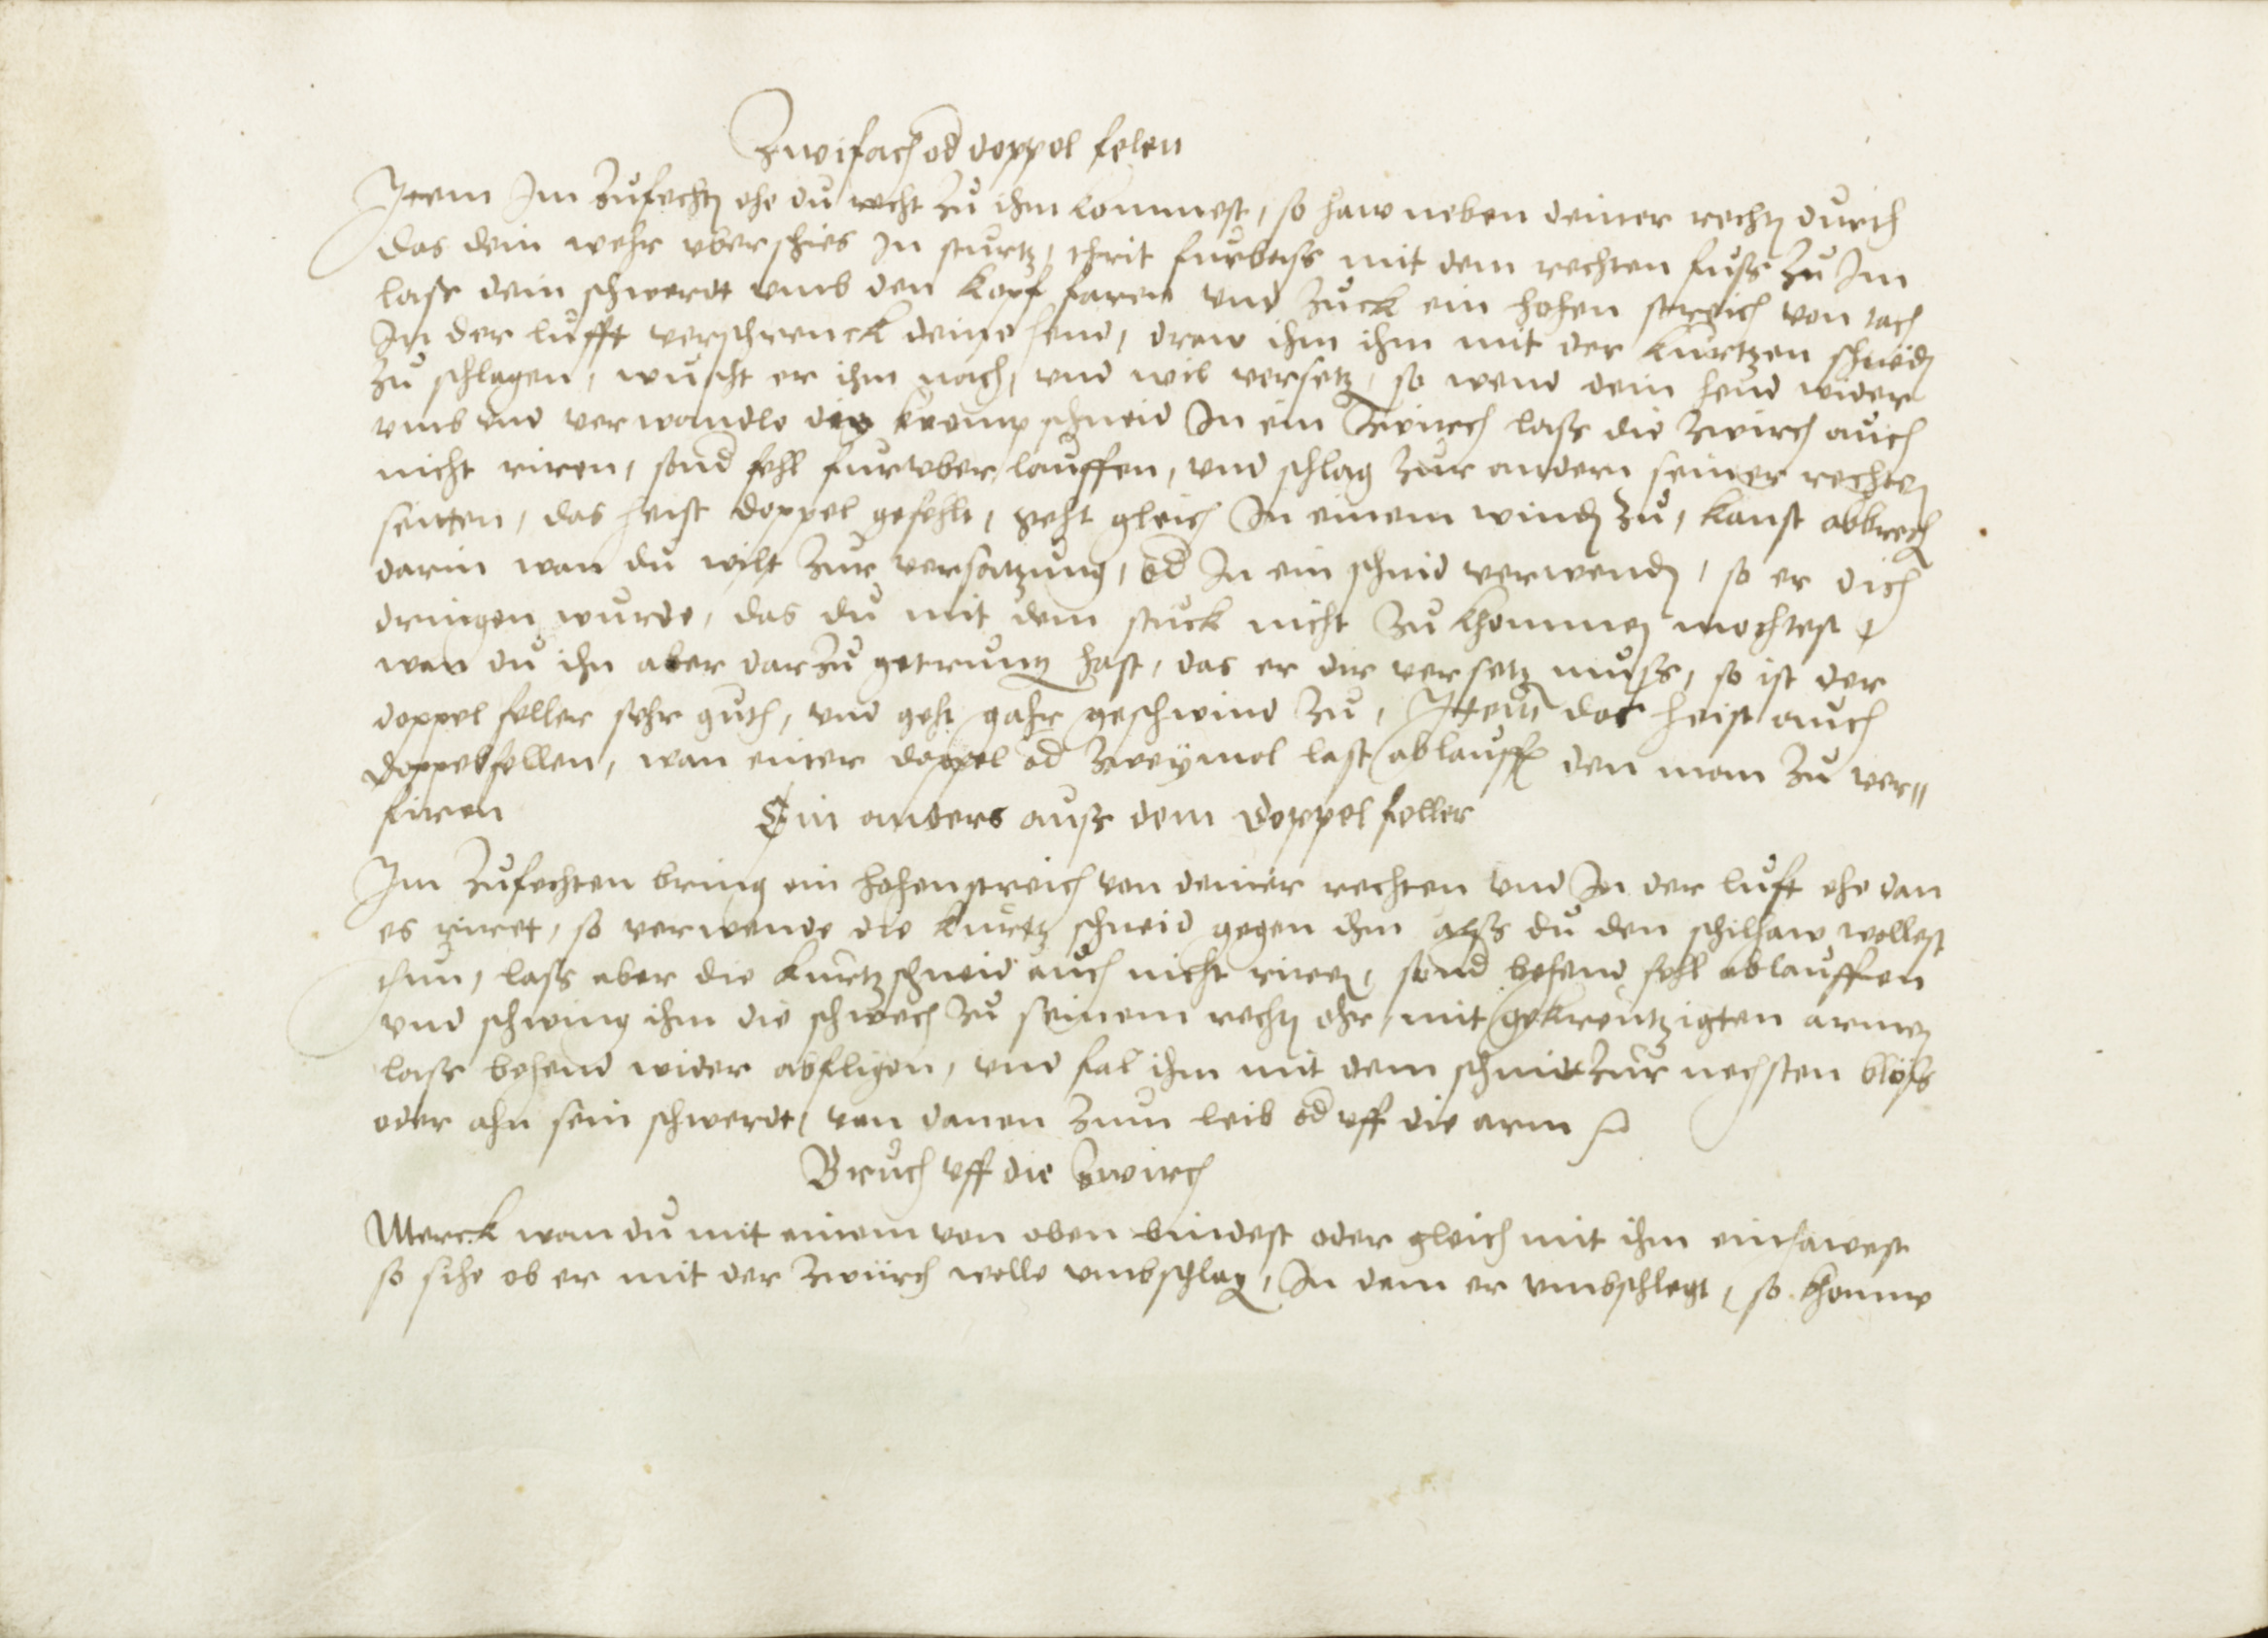 Zwifach od doppel felen
Item Im zufechten ehe du recht zu ihm kommest, so haw neben deiner rechten durch
das dein wehr uberschies In sturtz, thrit furbass mit dem rechten fuss zu Im
lass dein schwerdt umb den kopf faren und zuck ein hohen streich von tach
In der lufft verschrenck deine hend, drew ihm ihm mit der kurtzen schneiden
zu schlagen, wuscht er ihm nach, und wil versetzen, so wend dein hend wider
umb und verwandle die kromp schneid In ein Zwirch lass die zwirch auch
nicht riren, sond fehl furuber lauffen, und schlag zur andern seiner rechten
seitten, das heist doppel gefehlt, geht gleich In einem winden zu, kanst abbrechen
darin wan du wilt zur versatzung, od In ein schnid verwenden, so er dich
dringen wurde, das du mit dem stuck nicht zu khommen mochtest,
wan du ihn aber darzu getrungen hast, das er dir versetzen muss, so ist der
doppel feller sehr guth, und geht gahr geschwind zu, Item das heist auch
doppel fellen, wan einer doppel od zweymol last ablauffen den man zu ver=
firen
Ein anders auss dem doppel feller
Im zufechten bring ein hohenstreich von deiner rechten und In der luft ehe dan
es riret, so verwende die kurtz schneid gegen ihm alss du den schilhaw wollest
thun, lass aber die kurtz schneid auch nicht riren, sond behend fehl ablauffen
und schwing ihm die schwech zu seinem rechten ohr, mit gekreutzigten armen
lass behend wider abfligen, und fal ihm mit dem schnidt zur nechsten blöss
oder ahn sein schwerdt, von danen zum leib od uff die arm
Bruch uff die Zwirch
Merck wan du mit einem von oben bindest oder gleich mit ihm einhawest
so sihe ob er mit der zwürch wolle umbschlagen, In dem er umbschlegt, so khomme